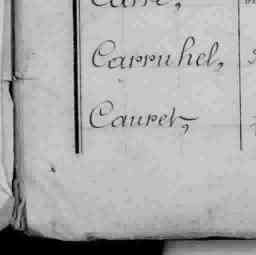 Carruhel,
Cauret,